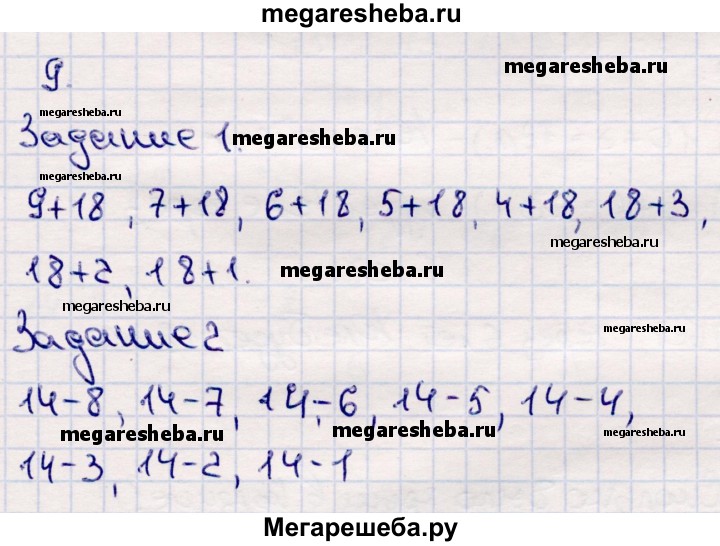 megaresheba.ru
9.
megaresheba.ru
megaresheba.ru
Задание 1.
megaresheba.ru
megaresheba.ru
9+18, 7+18, 6+18, 5+18, 4+18, 18+3,
megaresheba.ru
18+2, 18+1.
megaresheba.ru
megaresheba.ru
Задание 2
megaresheba.ru
14-8, 14-7, 14-6, 14-5, 14-4,
megaresheba.ru
megaresheba.ru
megaresheba.ru
14-3, 14-2, 14-1
Мегарешеба.ру